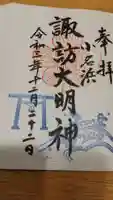 奉拝
小名浜
諏訪大明神
令和三年十二月二十二日